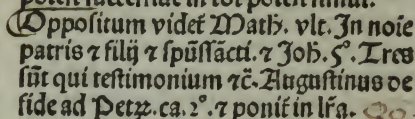 Oppositum videt᷑ Math. vlt. In noīe
patris ⁊ filij ⁊ spūssācti. ⁊ Joh. 5°. Tres
sūt qui testimonium ⁊c̄. Augustinus de
fide ad Petrꝝ. ca. 2°. ⁊ ponit᷑ in lr̄a.